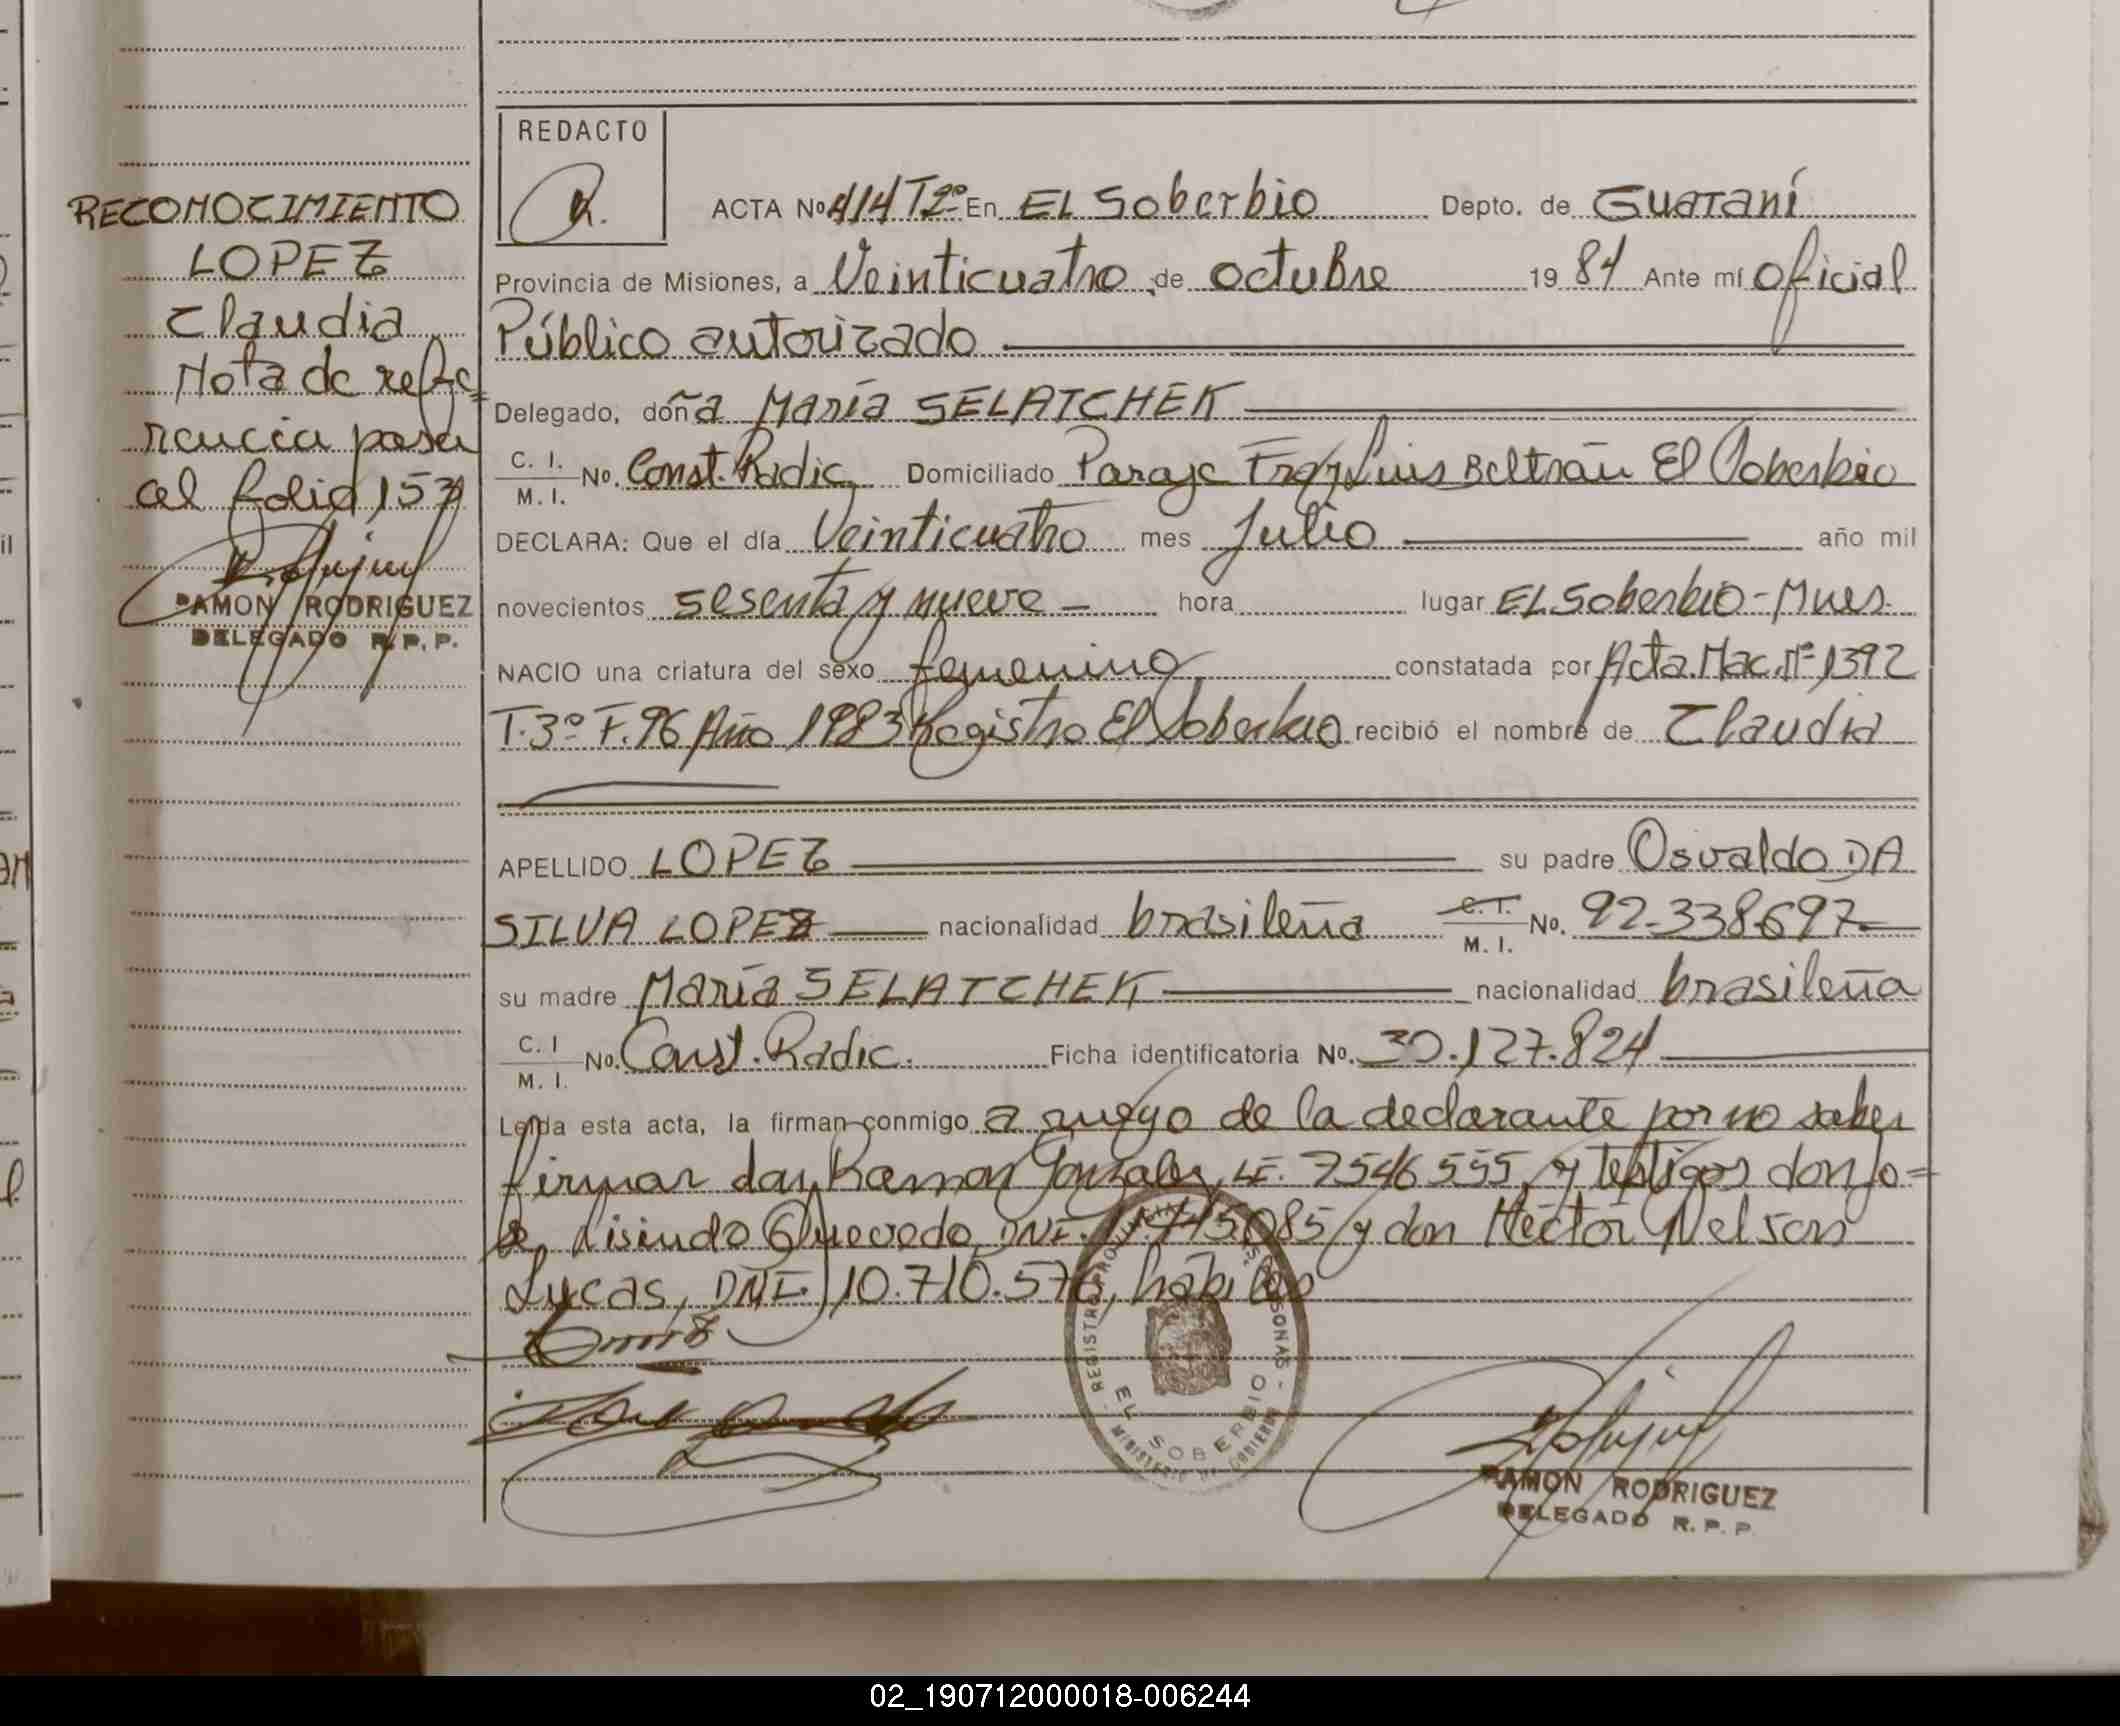 RECONOCIMIENTO
LOPEZ
Claudia
Nota de refe=
rencia pasa
al folio 157
RAMON RODRIGUEZ
DELEGADO R.P.P.
REDACTO
ACTA No 414 Tº2º En EL Soberbio Depto. de Guaraní
Provincia de Misiones, a Veinticuatro de octubre 1984 Ante mí oficial
Público autorizado
Delegado, doña María SELATCHEK
C. I. M. I. No. Const. Radic. Domiciliado Paraje Fray Luis Beltrán El Soberbio
DECLARA: Que el día Veinticuatro mes Julio año mil
novecientos sesenta y nueve hora lugar EL Soberbio-Mnes.
NACIO una criatura del sexo femenino constatada por Acta.Nac.Nº1392
T.3º F.96 Año 1983 Registro El Soberbio recibió el nombre de Claudia
APELLIDO LOPEZ su padre Osvaldo DA
SILVA LOPEZ nacionalidad brasileña C.I. M. I. No. 92.338.697
su madre María SELATCHEK nacionalidad brasileña
C. I M. I. No. Const. Radic. Ficha identificatoria No. 30.127.824
Leída esta acta, la firman conmigo a ruego de la declarante por no saber
firmar don Ramon Gonzalez, LE. 7546555, y testigos don Jo=
se Lisindo Quevedo, DNI. y don Héctor Nelson
Lucas, DNI. 10.710.576, hábiles
REGISTRO PROVINCIAL PERSONAS
EL SOBERBIO
MINISTERIO DE GOBIERNO
RAMON RODRIGUEZ
DELEGADO R. P. P.
02_190712000018-006244